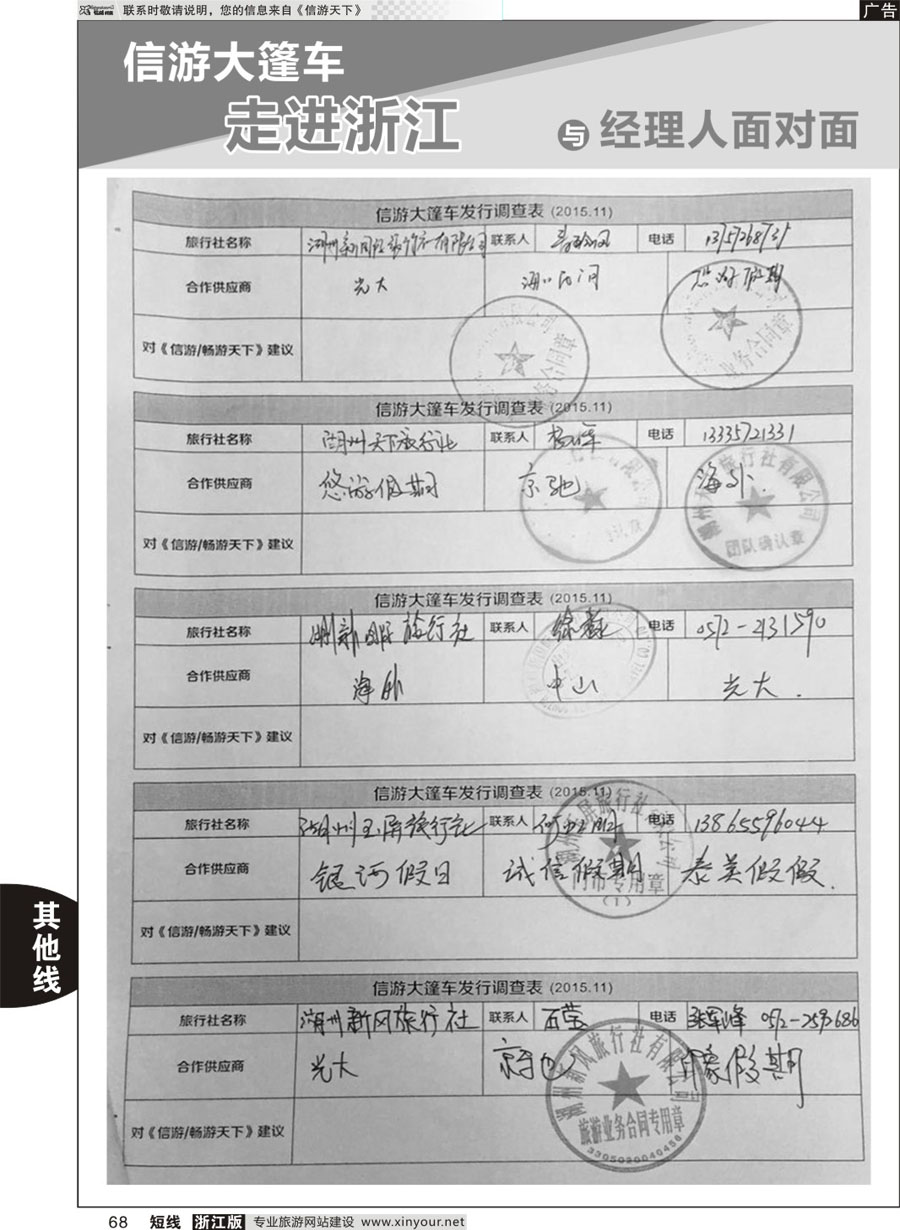 联系时敬请说明，您的信息来自《信游天下》
广告
信游大篷车
走进浙江
与 经理人面对面
信游大篷车发行调查表 (2015.11)
旅行社名称 联系人 电话
合作供应商 光大
对《信游/畅游天下》建议
业务合同章
信游大篷车发行调查表 (2015.11)
旅行社名称 湖州天下旅行社 联系人 电话 13335721331
合作供应商 悠游假期 京驰 海外
对《信游/畅游天下》建议
团队确认章
信游大篷车发行调查表 (2015.11)
旅行社名称 旅行社 联系人 电话 0572-2131590
合作供应商 海外 中山 光大
对《信游/畅游天下》建议
信游大篷车发行调查表 (2015.11)
旅行社名称 湖州玉屏旅行社 联系人 电话 13865596044
合作供应商 银河假日 诚信假期 泰美假假
对《信游/畅游天下》建议
门市专用章
(1)
信游大篷车发行调查表 (2015.11)
旅行社名称 湖州新风旅行社 联系人 电话 0572-2593686
合作供应商 光大 京驰 假期
对《信游/畅游天下》建议
湖州新风旅行社有限公司
旅游业务合同专用章
3305020040456
其他线
68 短线 浙江版 专业旅游网站建设 www.xinyour.net